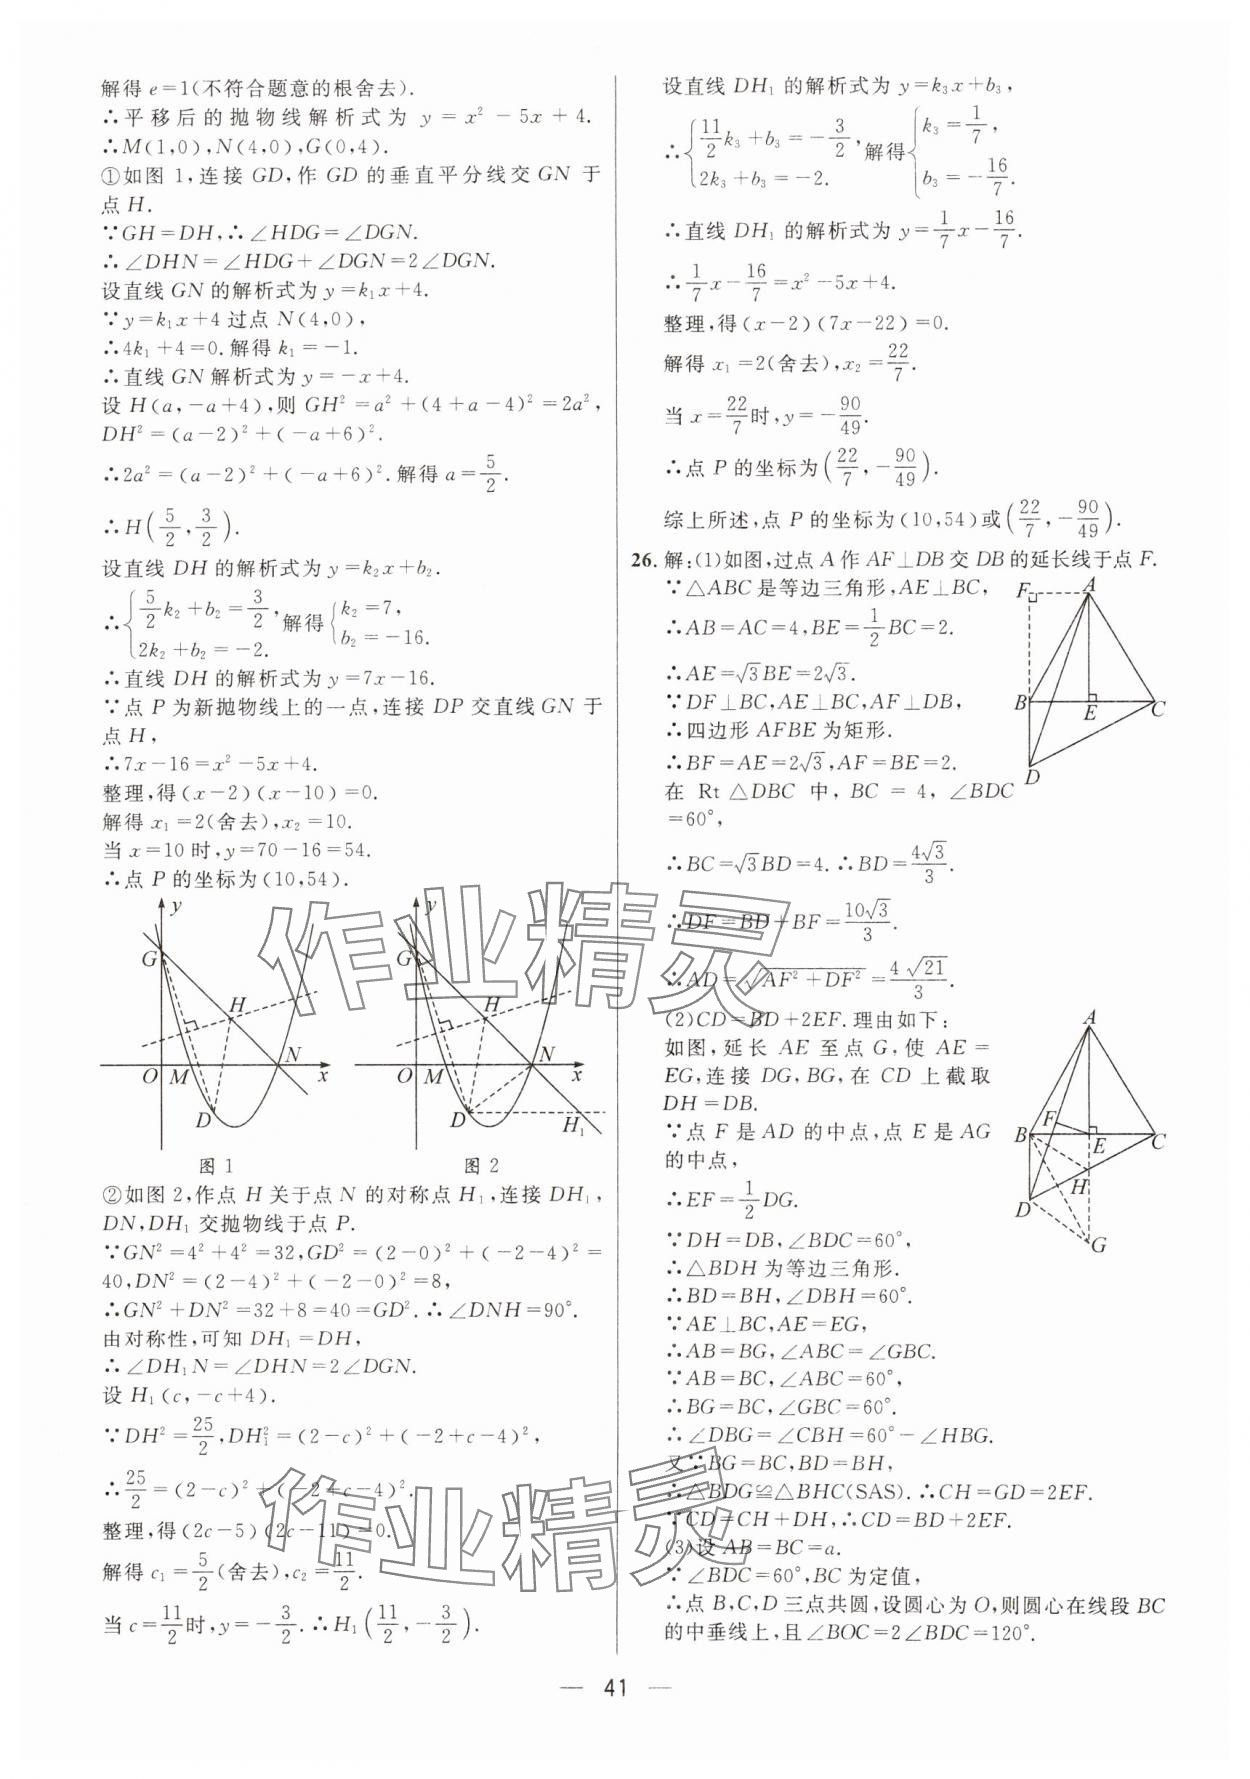 解得 e=1(不符合题意的根舍去).
∴平移后的抛物线解析式为 y = x² - 5x + 4.
∴M(1,0),N(4,0),G(0,4).
①如图 1,连接 GD,作 GD 的垂直平分线交 GN 于
点 H.
∵GH=DH,∴∠HDG=∠DGN.
∴∠DHN=∠HDG+∠DGN=2∠DGN.
设直线 GN 的解析式为 y=k₁x+4.
∵y=k₁x+4 过点 N(4,0),
∴4k₁+4=0.解得 k₁=-1.
∴直线 GN 解析式为 y=-x+4.
设 H(a,-a+4),则 GH²=a²+(4+a-4)²=2a²,
DH²=(a-2)²+(-a+6)².
∴2a²=(a-2)²+(-a+6)².解得 a=5/2.
∴H(5/2,3/2).
设直线 DH 的解析式为 y=k₂x+b₂.
∴{5/2k₂+b₂=3/2, 2k₂+b₂=-2. 解得{k₂=7, b₂=-16.
∴直线 DH 的解析式为 y=7x-16.
∵点 P 为新抛物线上的一点,连接 DP 交直线 GN 于
点 H,
∴7x-16=x²-5x+4.
整理,得(x-2)(x-10)=0.
解得 x₁=2(舍去),x₂=10.
当 x=10 时,y=70-16=54.
∴点 P 的坐标为(10,54).
y
G
H
N
O M x
D
图 1
y
G
H
N
O M x
D
H₁
图 2
②如图 2,作点 H 关于点 N 的对称点 H₁,连接 DH₁,
DN,DH₁ 交抛物线于点 P.
∵GN²=4²+4²=32,GD²=(2-0)²+(-2-4)²=
40,DN²=(2-4)²+(-2-0)²=8,
∴GN²+DN²=32+8=40=GD².∴∠DNH=90°.
由对称性,可知 DH₁=DH,
∴∠DH₁N=∠DHN=2∠DGN.
设 H₁(c,-c+4).
∵DH²=25/2,DH₁²=(2-c)²+(-2+c-4)²,
∴25/2=(2-c)²+(-2+c-4)².
整理,得(2c-5)(2c-11)=0.
解得 c₁=5/2(舍去),c₂=11/2.
当 c=11/2时,y=-3/2.∴H₁(11/2,-3/2).
设直线 DH₁ 的解析式为 y=k₃x+b₃,
∴{11/2k₃+b₃=-3/2, 2k₃+b₃=-2. 解得{k₃=1/7, b₃=-16/7.
∴直线 DH₁ 的解析式为 y=1/7x-16/7.
∴1/7x-16/7=x²-5x+4.
整理,得(x-2)(7x-22)=0.
解得 x₁=2(舍去),x₂=22/7.
当 x=22/7时,y=-90/49.
∴点 P 的坐标为(22/7,-90/49).
综上所述,点 P 的坐标为(10,54)或(22/7,-90/49).
26.解:(1)如图,过点 A 作 AF⊥DB 交 DB 的延长线于点 F.
∵△ABC 是等边三角形,AE⊥BC,
∴AB=AC=4,BE=1/2BC=2.
∴AE=√3BE=2√3.
∵DF⊥BC,AE⊥BC,AF⊥DB,
∴四边形 AFBE 为矩形.
∴BF=AE=2√3,AF=BE=2.
在 Rt△DBC 中, BC = 4, ∠BDC
=60°,
∴BC=√3BD=4.∴BD=4√3/3.
∴DF=BD+BF=10√3/3.
∴AD=√AF²+DF²=4√21/3.
F A
B E C
D
(2)CD=BD+2EF.理由如下:
如图,延长 AE 至点 G,使 AE=
EG,连接 DG,BG,在 CD 上截取
DH=DB.
∵点 F 是 AD 的中点,点 E 是 AG
的中点,
∴EF=1/2DG.
∵DH=DB,∠BDC=60°,
∴△BDH 为等边三角形.
∴BD=BH,∠DBH=60°.
∵AE⊥BC,AE=EG,
∴AB=BG,∠ABC=∠GBC.
∵AB=BC,∠ABC=60°,
∴BG=BC,∠GBC=60°.
∴∠DBG=∠CBH=60°-∠HBG.
又∵BG=BC,BD=BH,
∴△BDG≌△BHC(SAS).∴CH=GD=2EF.
∵CD=CH+DH,∴CD=BD+2EF.
A
F
B E C
H
D
G
(3)设 AB=BC=a.
∵∠BDC=60°,BC 为定值,
∴点 B,C,D 三点共圆,设圆心为 O,则圆心在线段 BC
的中垂线上,且∠BOC=2∠BDC=120°.
作业精灵
作业精灵
— 41 —